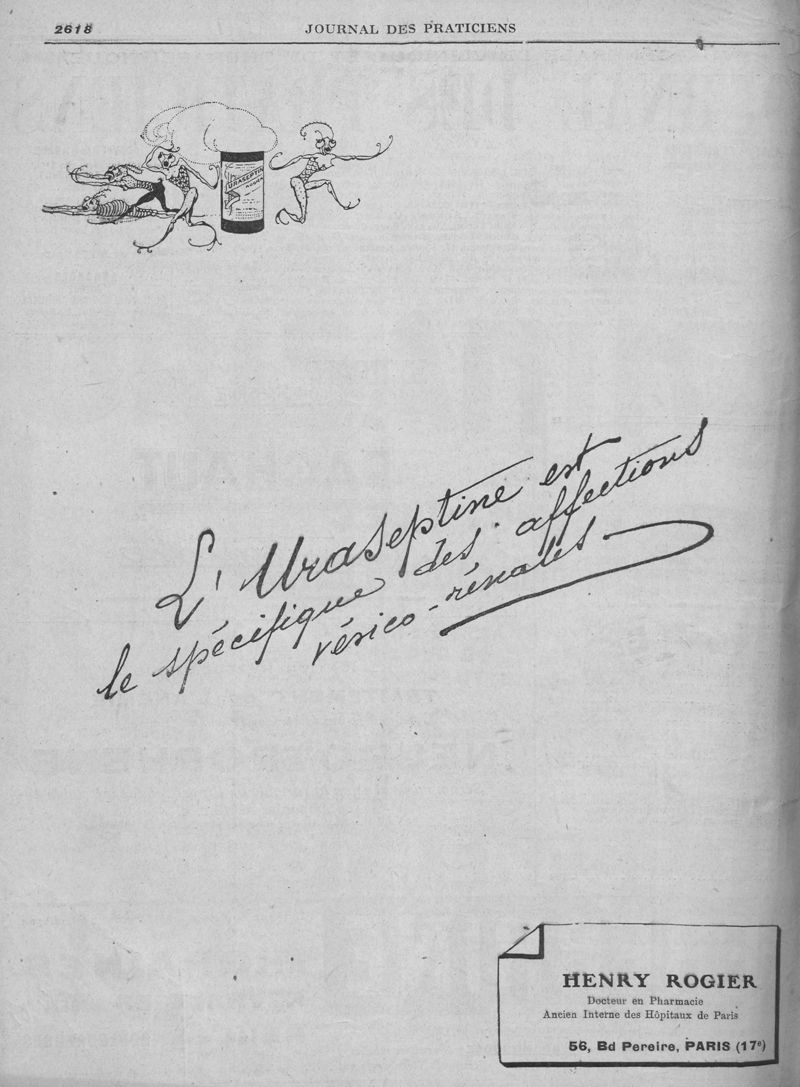 2618
JOURNAL DES PRATICIENS
URASEPTINE
ROGIER
L'Uraseptine est
le spécifique des affections
vésico-rénales
HENRY ROGIER
Docteur en Pharmacie
Ancien Interne des Hôpitaux de Paris
56, Bd Pereire, PARIS (17e)